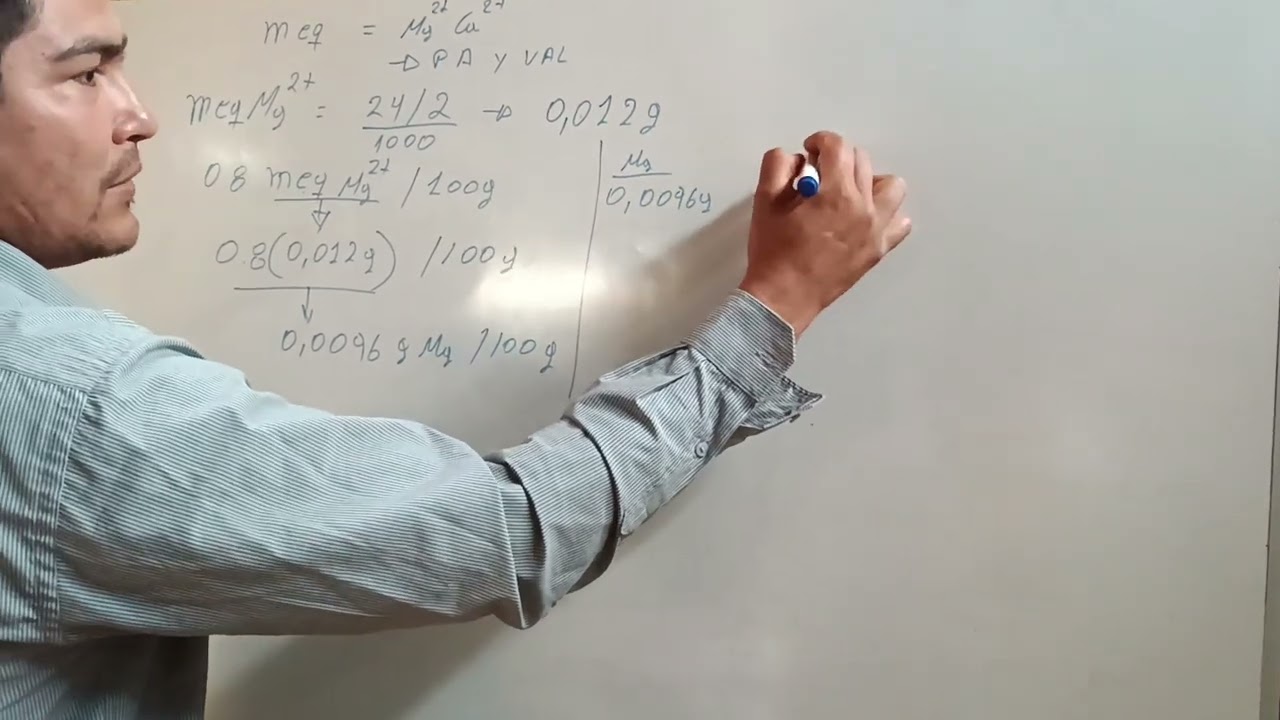 meq = Mg²⁺ Ca²⁺
→ PA Y VAL
meq Mg²⁺ = 24/2 → 0,012g
1000
0.8 meq Mg²⁺ /100g
0.8(0,012g) /100g
0,0096 g Mg /100g
Mg
0,0096g